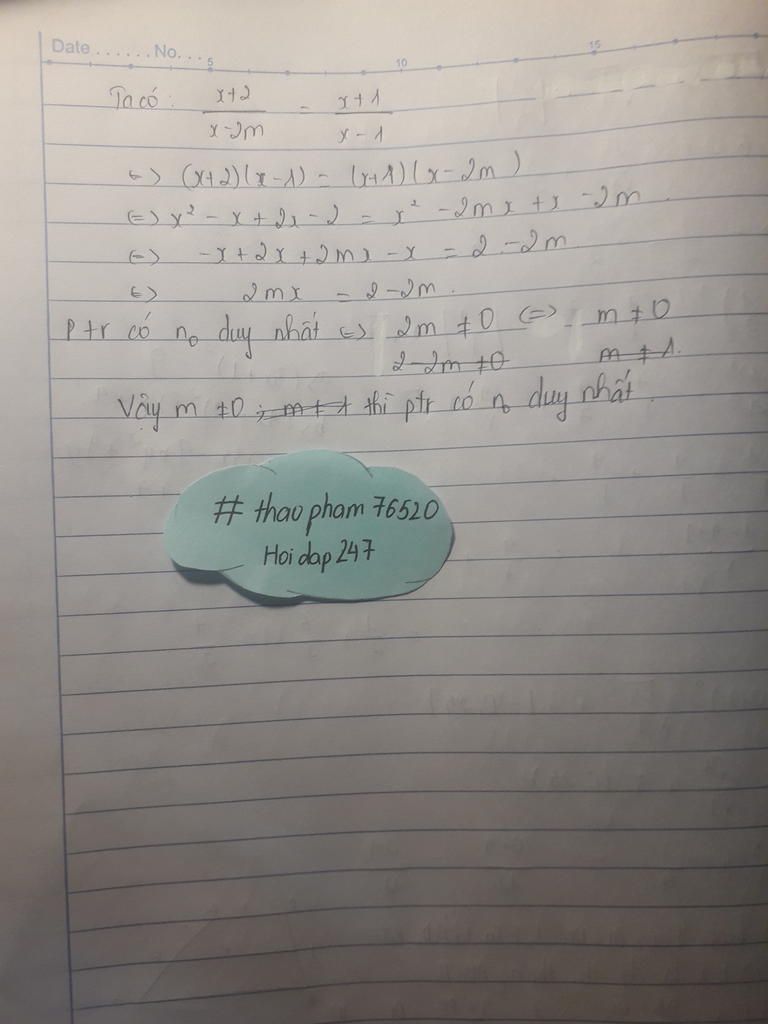 Date ...... No...
5 10 15
Ta có: x+2 / x-2m = x+1 / x-1
<=> (x+2)(x-1) = (x+1)(x-2m)
<=> x² - x + 2x - 2 = x² - 2mx + x - 2m
<=> -x + 2x + 2mx - x = 2 - 2m
<=> 2mx = 2-2m.
Ptr có n₀ duy nhất <=> 2m ≠ 0 <=> m ≠ 0
2-2m ≠ 0 m ≠ 1.
Vậy m ≠ 0 ; m ≠ 1 thì ptr có n₀ duy nhất.
# thao pham 76520
Hoi dap 247